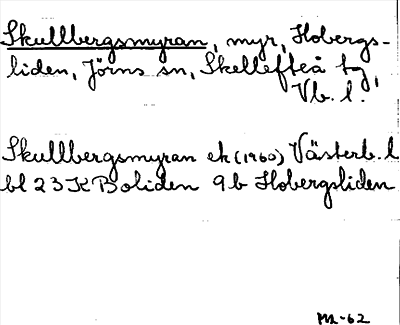 Skullbergsmyran, myr, Hobergs-
liden, Jörns sn, Skellefteå tg,
Vb. l.
Skullbergsmyran ek (1960) Västerb. l
bl 23 K Boliden 9b Hobergsliden
-62